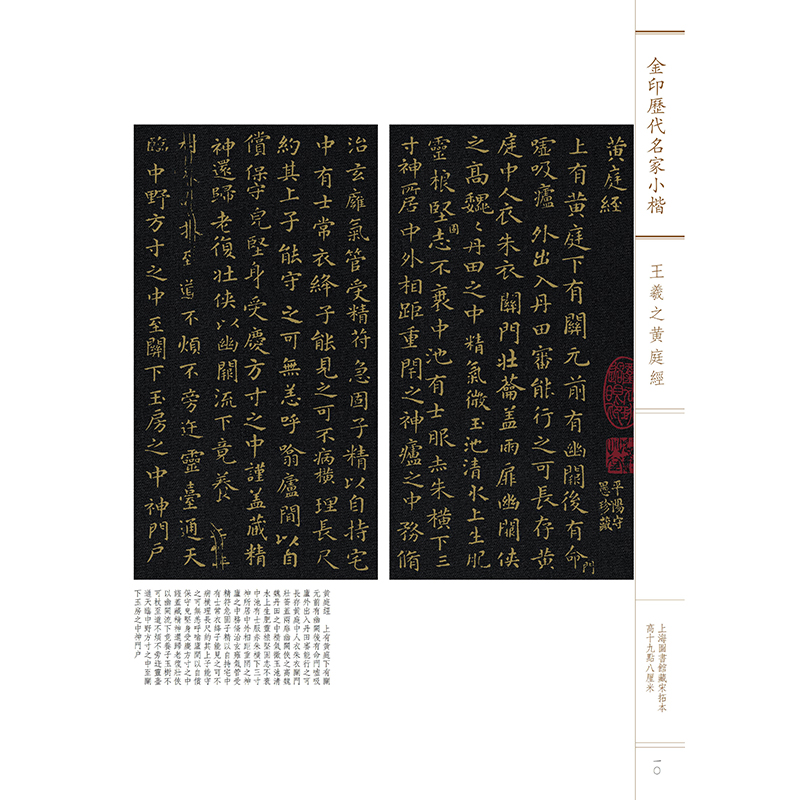 金印歷代名家小楷
王羲之黃庭經
上海圖書館藏宋拓本
高十九點八厘米
一〇
黃庭經
平陽守
思珍藏
上有黃庭下有關元前有幽闕後有命門
噓吸廬外出入丹田審能行之可長存黃
庭中人衣朱衣關門壯籥蓋兩扉幽闕俠
之高魏〻丹田之中精氣微玉池清水上生肥
靈根堅固志不衰中池有士服赤朱橫下三
寸神所居中外相距重閉之神廬之中務脩
治玄廱氣管受精符急固子精以自持宅
中有士常衣絳子能見之可不病橫理長尺
約其上子能守之可無恙呼噏廬間以自
償保守皃堅身受慶方寸之中謹蓋藏精
神還歸老復壯俠以幽闕流下竟養
樹至道不煩不旁迕靈臺通天
臨中野方寸之中至關下玉房之中神門戶
黃庭經　上有黃庭下有關
元前有幽闕後有命門噓吸
廬外出入丹田審能行之可
長存黃庭中人衣朱衣關門
壯籥蓋兩扉幽闕俠之高魏
魏丹田之中精氣微玉池清
水上生肥靈根堅固志不衰
中池有士服赤朱橫下三寸
神所居中外相距重閉之神
廬之中務脩治玄廱氣管受
精符急固子精以自持宅中
有士常衣絳子能見之可不
病橫理長尺約其上子能守
之可無恙呼噏廬間以自償
保守皃堅身受慶方寸之中
謹蓋藏精神還歸老復壯俠
以幽闕流下竟養子玉樹不
可杖至道不煩不旁迕靈臺
通天臨中野方寸之中至關
下玉房之中神門戶